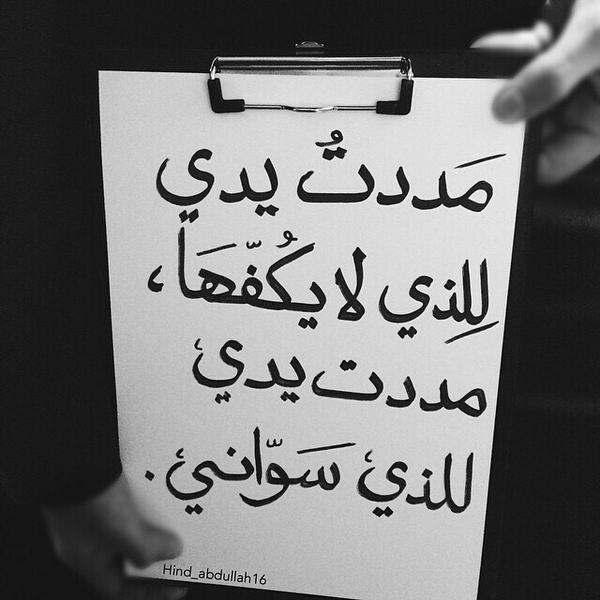 مَددتُ يدي
لِلذي لا يكُفّهَا،
مددت يدي
للذي سَوّاني.
Hind_abdullah16